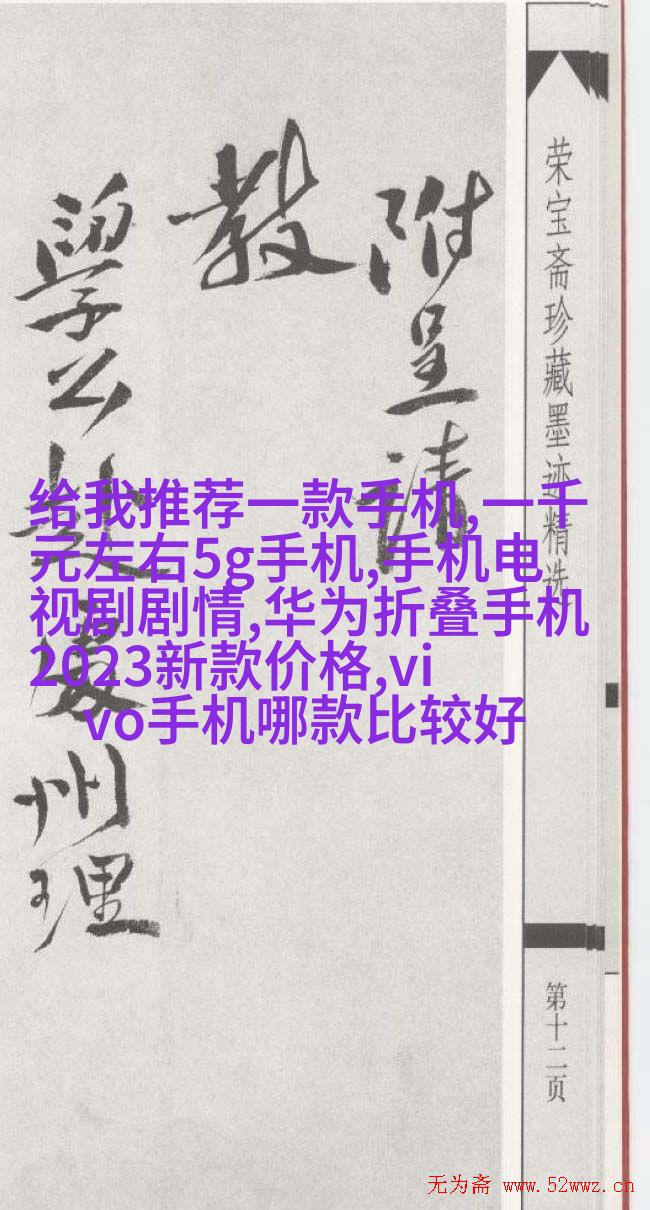 附呈请
教
学公赵
州理
荣宝斋珍藏墨迹精选
第十二页
给我推荐一款手机,一千
元左右5g手机,手机电
视剧剧情,华为折叠手机
2023新款价格,vi
vo手机哪款比较好
无为斋 www.52wwz.cn